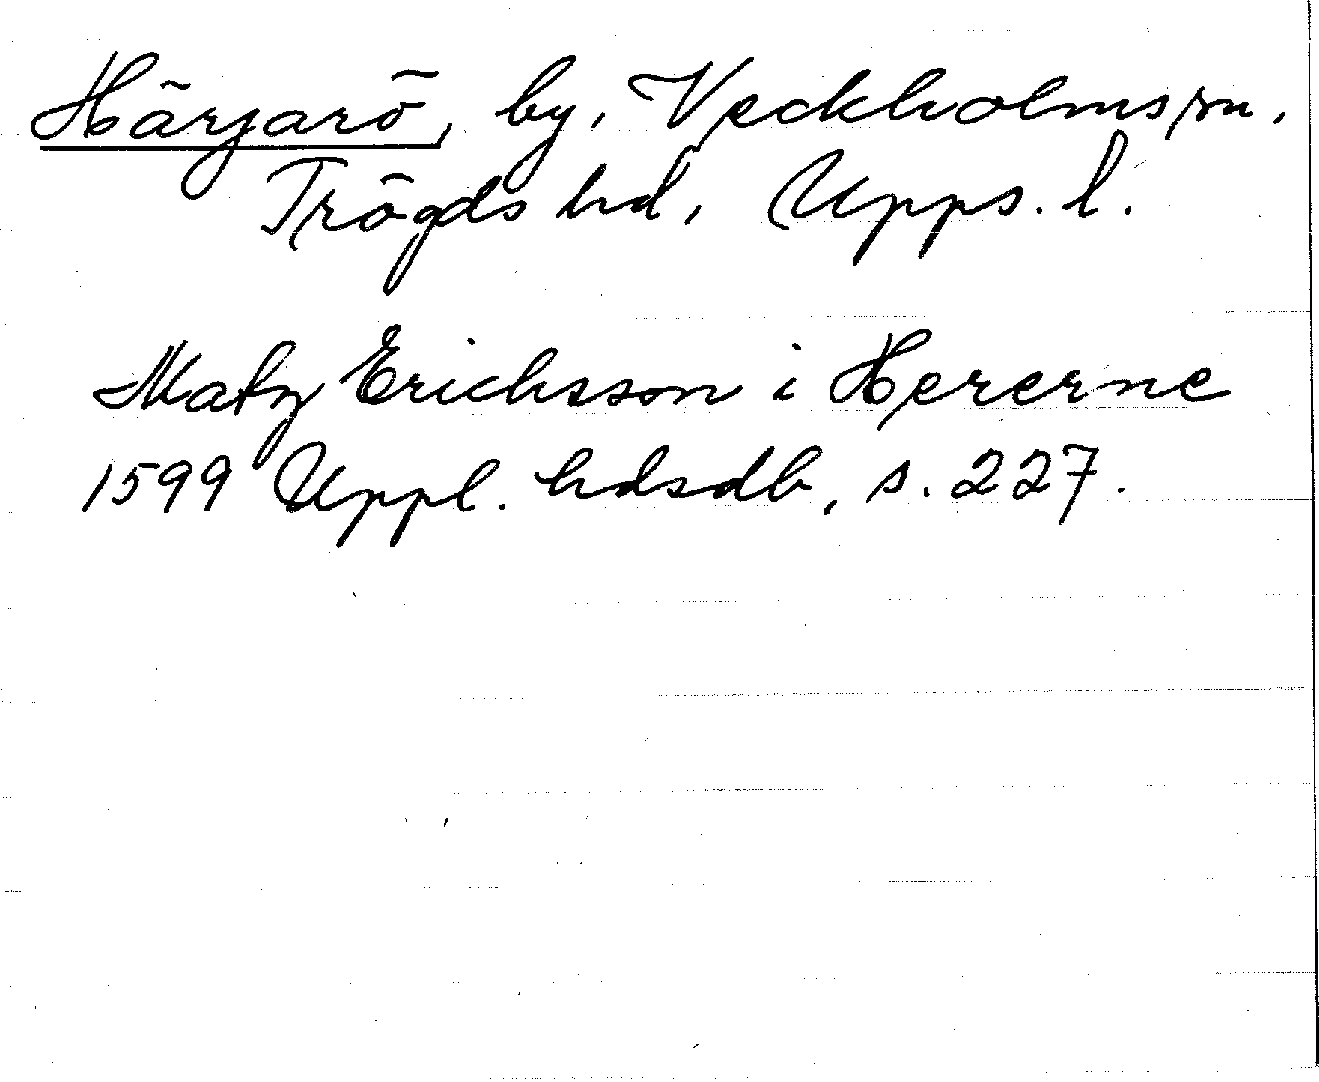 Härjarö, by, Veckholms sn,
Trögds hd, Upps. l.
Matz Erichsson i Hererne
1599 Uppl. hdsdb, s. 227.